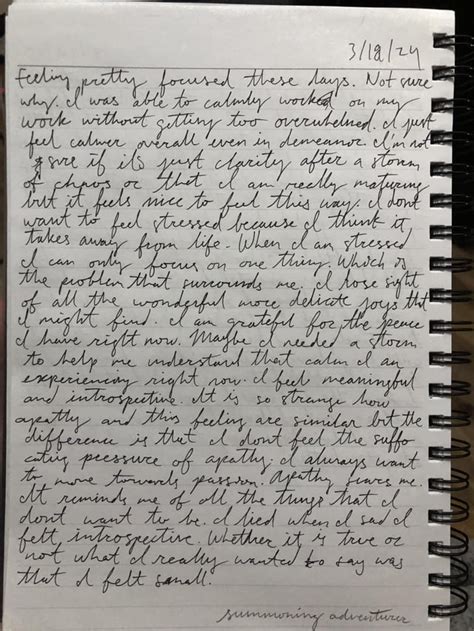 3/18/24
Feeling pretty focused these days. Not sure
why. I was able to calmly worked on my
work without getting too overwhelmed. I just
feel calmer overall even in demeanor. I'm not
sure if it's just clarity after a storm
of chaos or that I am really maturing
but it feels nice to feel this way. I dont
want to feel stressed because I think it
takes away from life. When I am stressed
I can only focus on one thing. Which is
the problem that surrounds me. I lose sight
of all the wonderful more delicate joys that
I might find. I am grateful for the peace
I have right now. Maybe I needed a storm
to help me understand that calm I am
experiencing right now. I feel meaningful
and introspective. It is so strange how
apathy and this feeling are similar but the
difference is that I dont feel the suffo
cating pressure of apathy. I always want
to move towards passion. Apathy scares me.
It reminds me of all the things that I
dont want to be. I lied when I said I
felt introspective. Whether it is true or
not what I really wanted to say was
that I felt small.
summoning adventurer